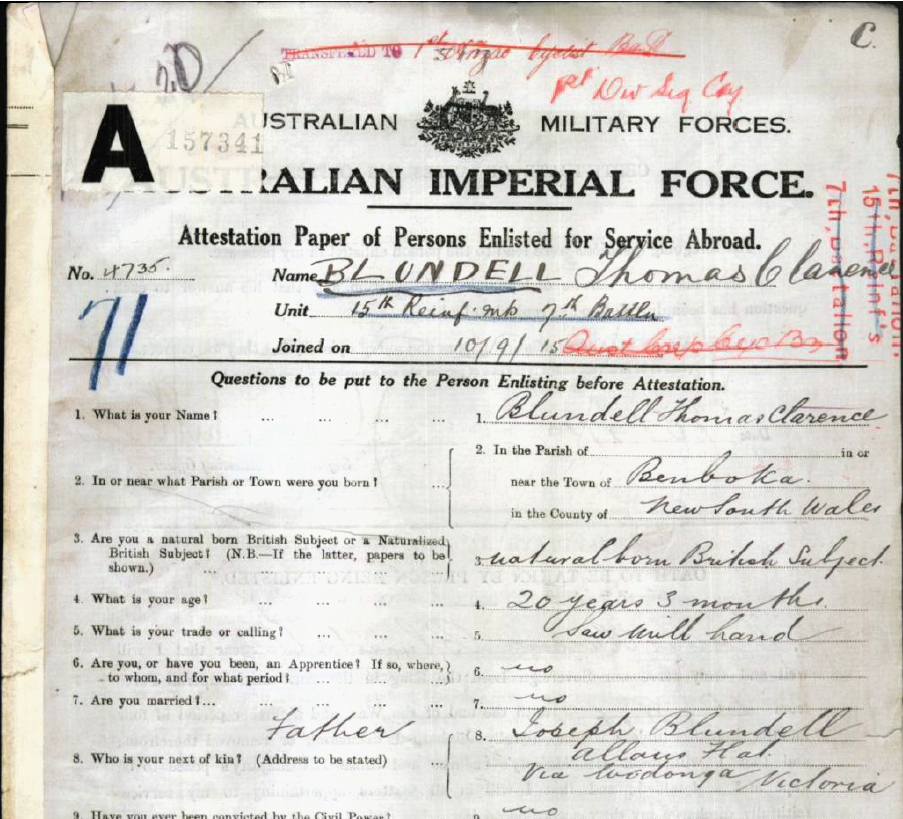 C.
TRANSFERRED TO 1st Anzac Cyclist Batt
1st Div Sig Coy
A 157341
AUSTRALIAN MILITARY FORCES.
AUSTRALIAN IMPERIAL FORCE.
Attestation Paper of Persons Enlisted for Service Abroad.
No. 4735. Name BLUNDELL Thomas Clarence
71
Unit 15th Reinf.mts 7th Battln
Joined on 10/9/15 Aust Corps Cyc Bn
7th, Battalion.
15th, Reinf's
7th, Battalion.
Questions to be put to the Person Enlisting before Attestation.
1. What is your Name? ... ... ... ... 1. Blundell Thomas Clarence
2. In or near what Parish or Town were you born? ... 2. In the Parish of in or
near the Town of Benboka.
in the County of New South Wales
3. Are you a natural born British Subject or a Naturalized
British Subject? (N.B.—If the latter, papers to be
shown.) ... 3. natural born British Subject.
4. What is your age? ... ... ... ... 4. 20 years 3 months.
5. What is your trade or calling? ... ... ... 5. Saw Mill hand
6. Are you, or have you been, an Apprentice? If so, where,
to whom, and for what period? ... ... ... 6. no
7. Are you married?... ... ... ... ... 7. no
Father
8. Who is your next of kin? (Address to be stated) ... 8. Joseph Blundell
Allans Flat
Via Wodonga Victoria
9. Have you ever been convicted by the Civil Power? 9. no